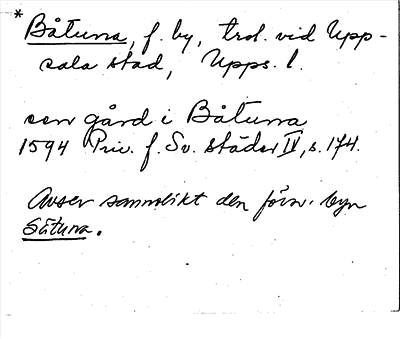 * Båtuna, f. by, trol. vid Upp-
sala stad, Upps. l.
en gård i Båtuna
1594 Priv. f. Sv. städer IV, s. 174.
Avser sannolikt den förv. byn
Såtuna.